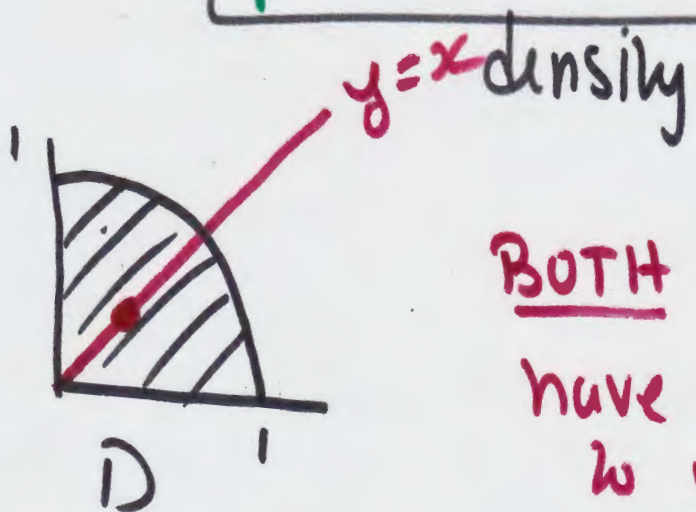 y=x density
1
BOTH
have
1
D